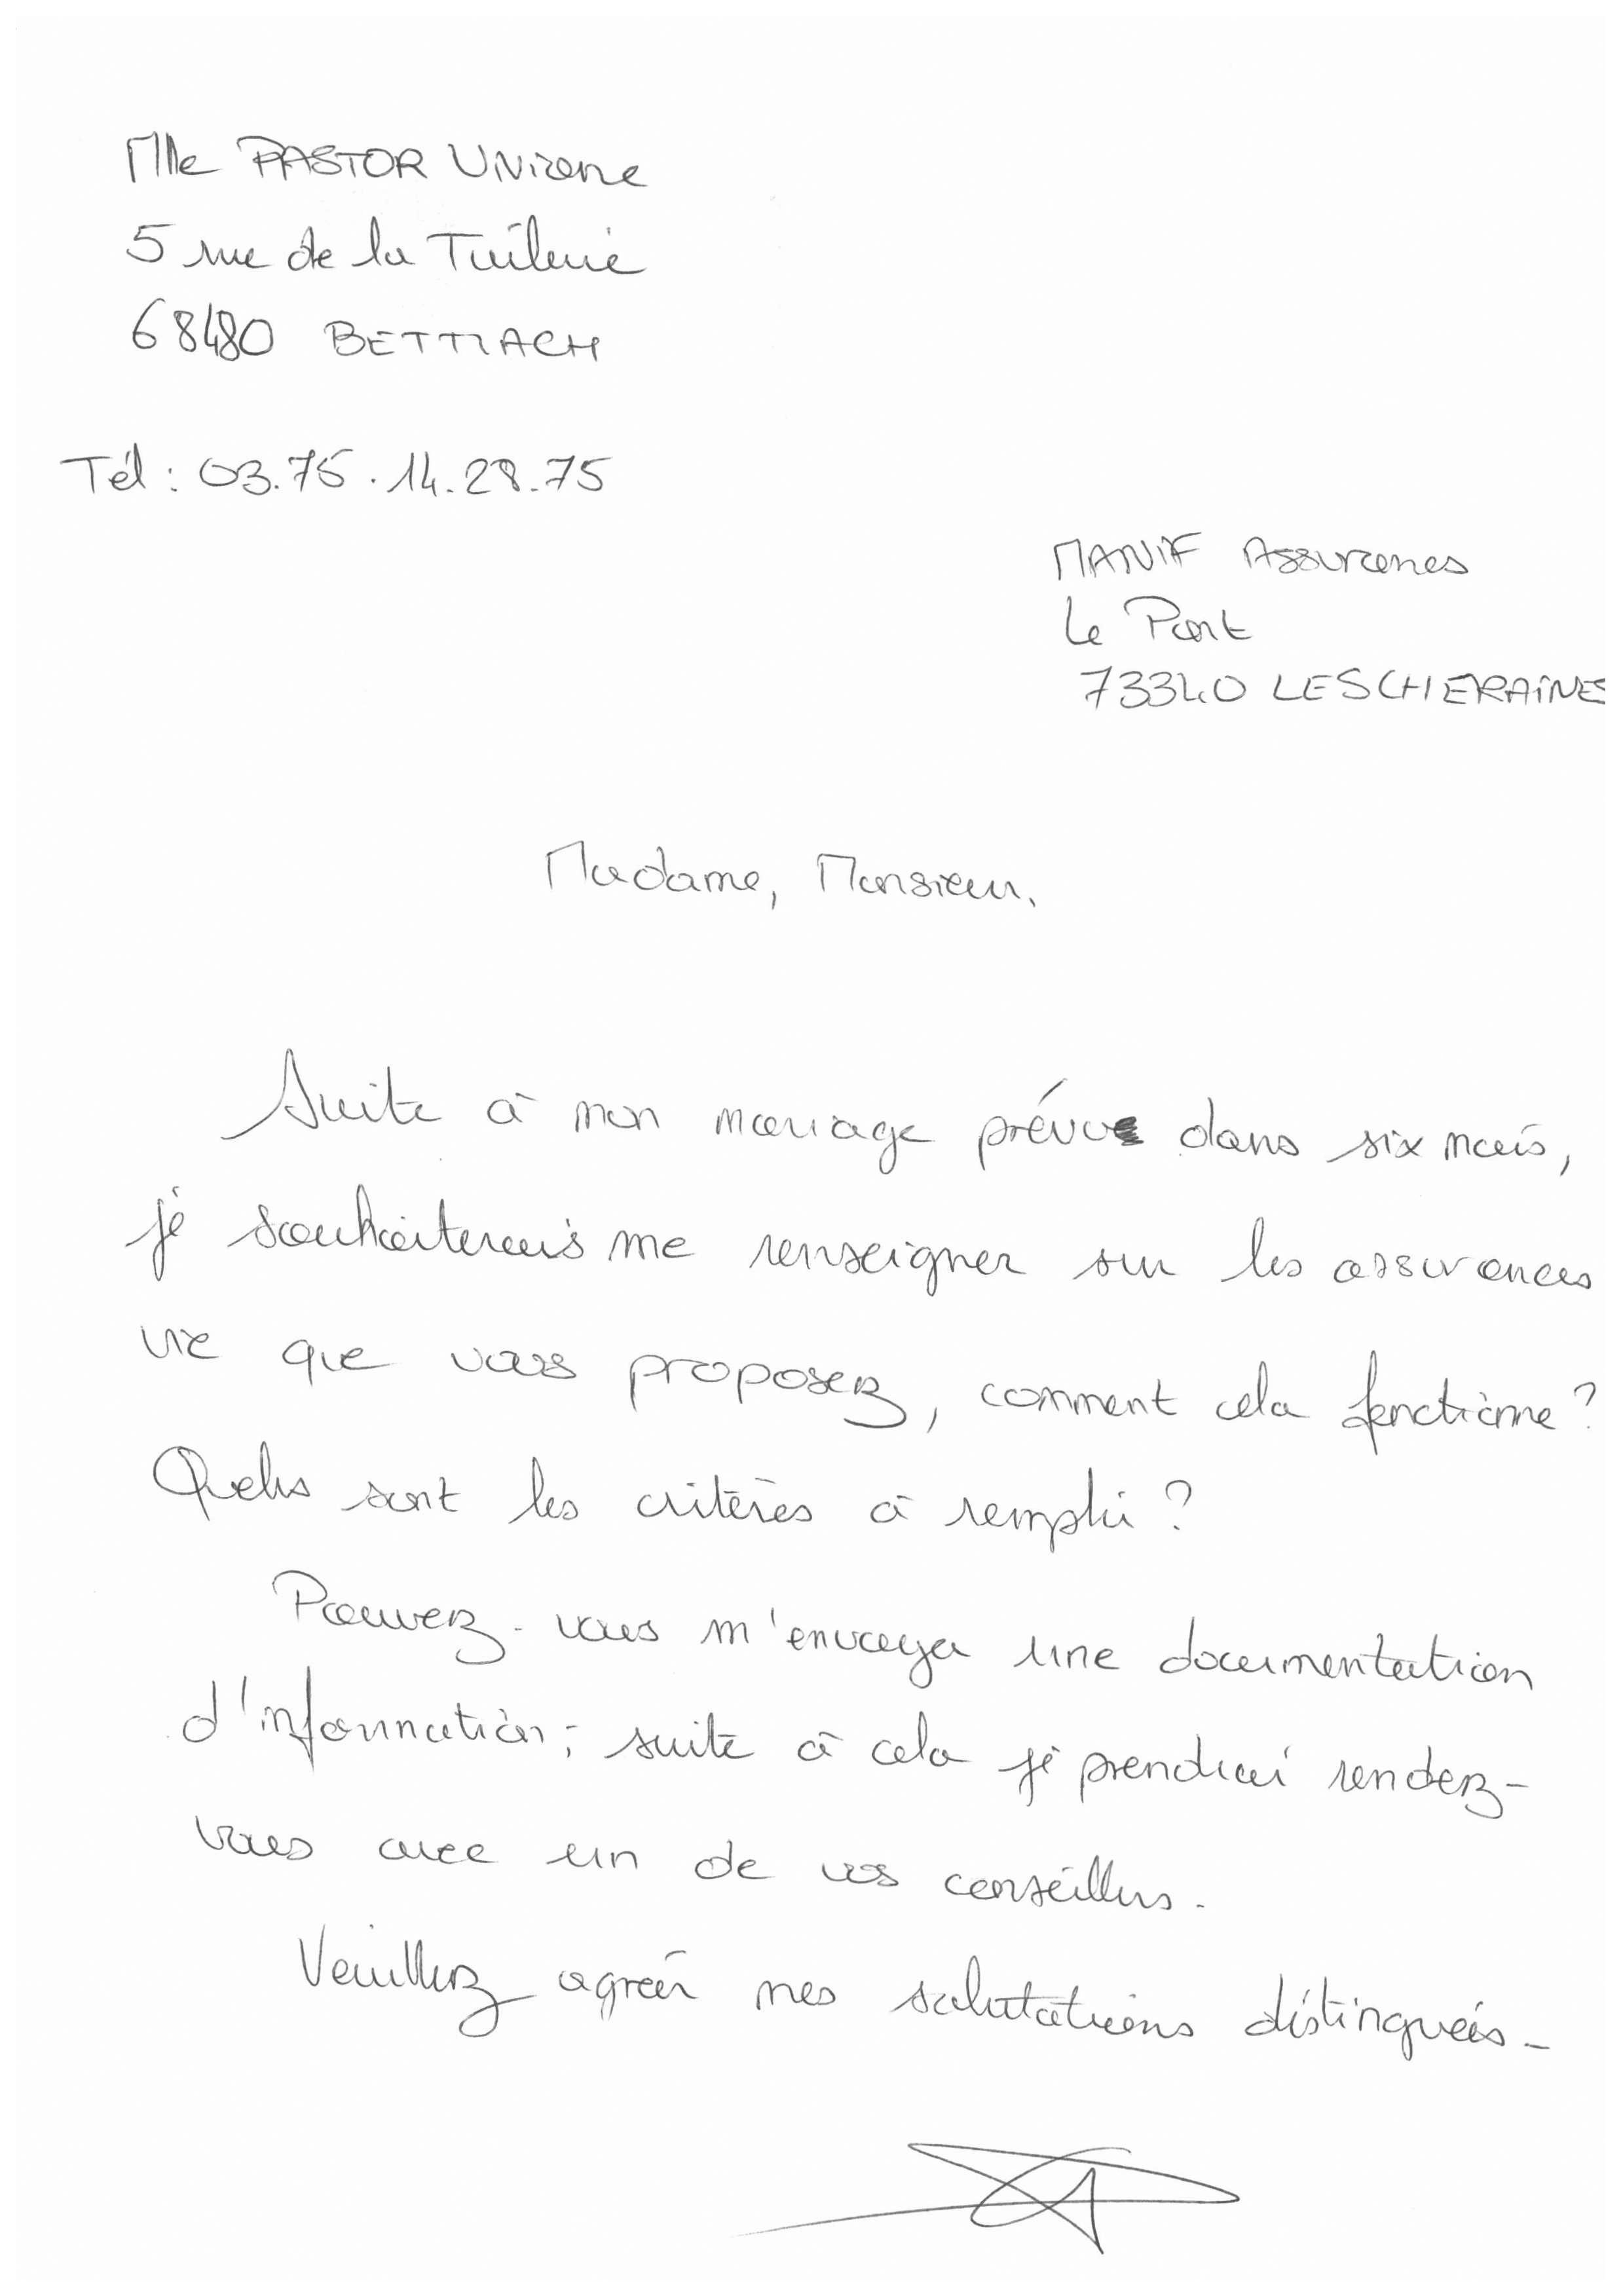 Mlle PASTOR Viviane
5 rue de la Tuilerie
68480 BETTLACH
Tél : 03.75.14.28.75
MANIF Assurances
Le Pont
73340 LESCHERAINES
Madame, Monsieur,
Suite à mon mariage prévu dans six mois,
je souhaiterais me renseigner sur les assurances
vie que vous proposez, comment cela fonctionne ?
Quels sont les critères à rempli ?
Pouvez-vous m'envoyer une documentation
d'information ; suite à cela je prendrai rendez-
vous avec un de vos conseillers.
Veuillez agréer mes salutations distinguées.